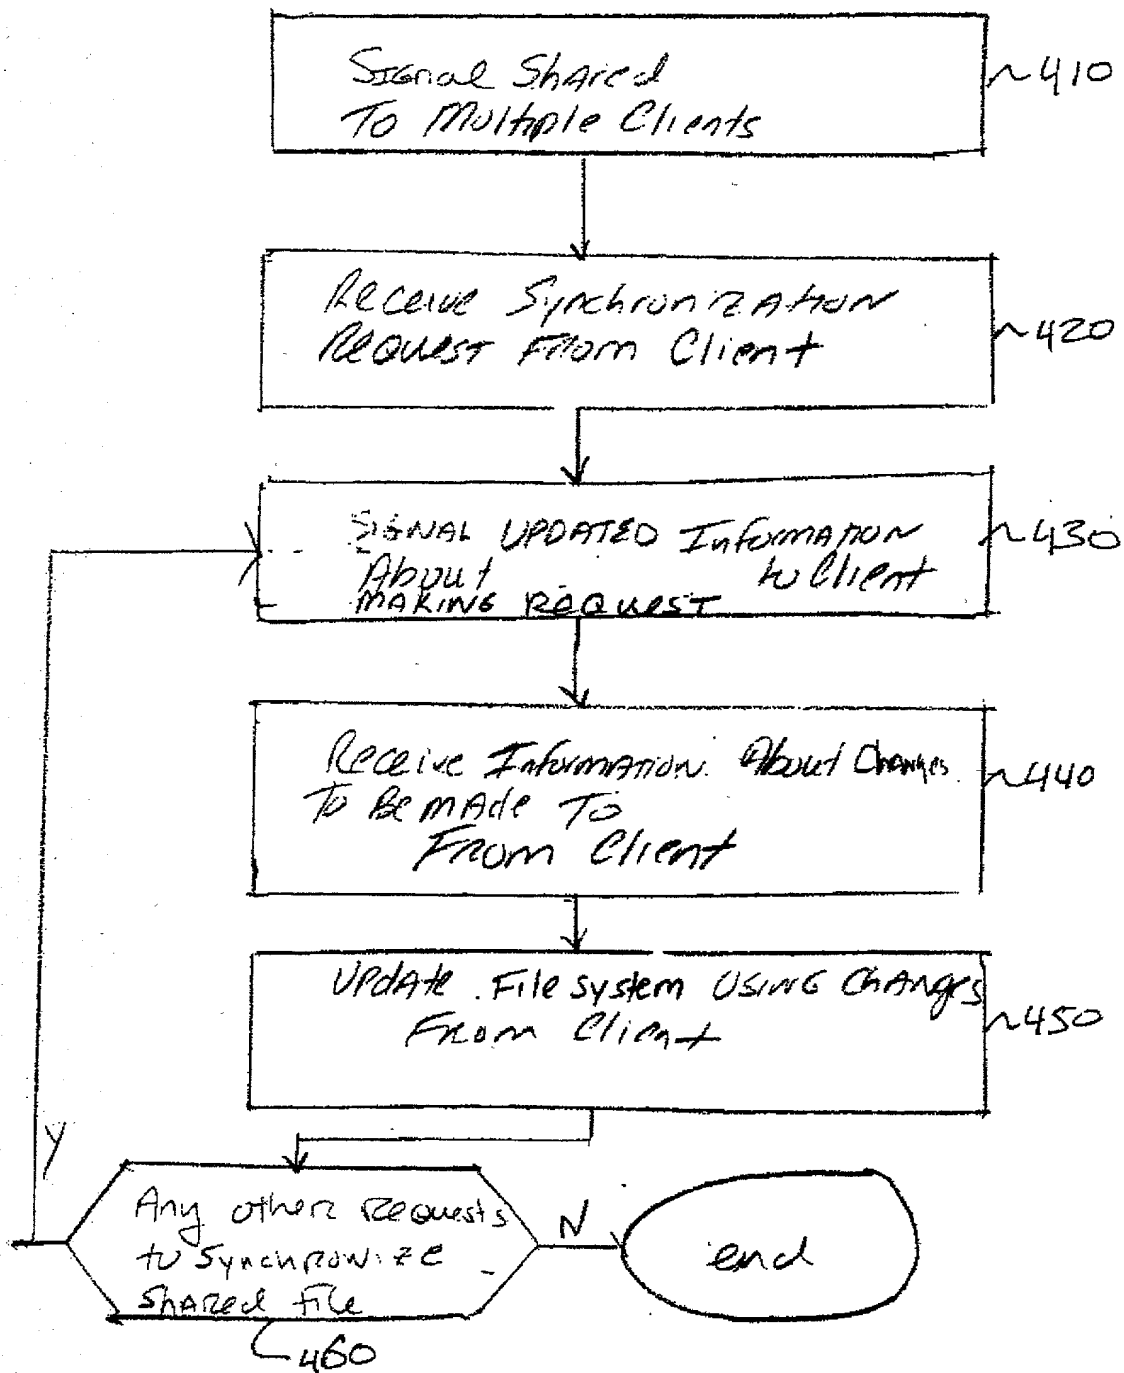 Signal Shared
To Multiple Clients
410
Receive Synchronization
Request From Client
420
SIGNAL UPDATED Information
About to Client
MAKING REQUEST
430
Receive Information About Changes
To Be made To
From Client
440
Update File system USING Changes
From Client
450
Y
Any other Requests
to Synchronize
Shared file
N
end
460